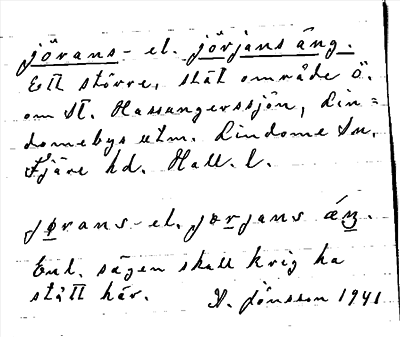 jörans- el. jörjans äng.
Ett större, slät område ö.
om St. Hassungerssjön, Lin=
domebys utm. Lindome Sn.
Fjäre hd. Hall. l.
jørans- el. jørjans áŋ.
Enl. sägen skall krig ha
stått här. H. Jönsson 1941